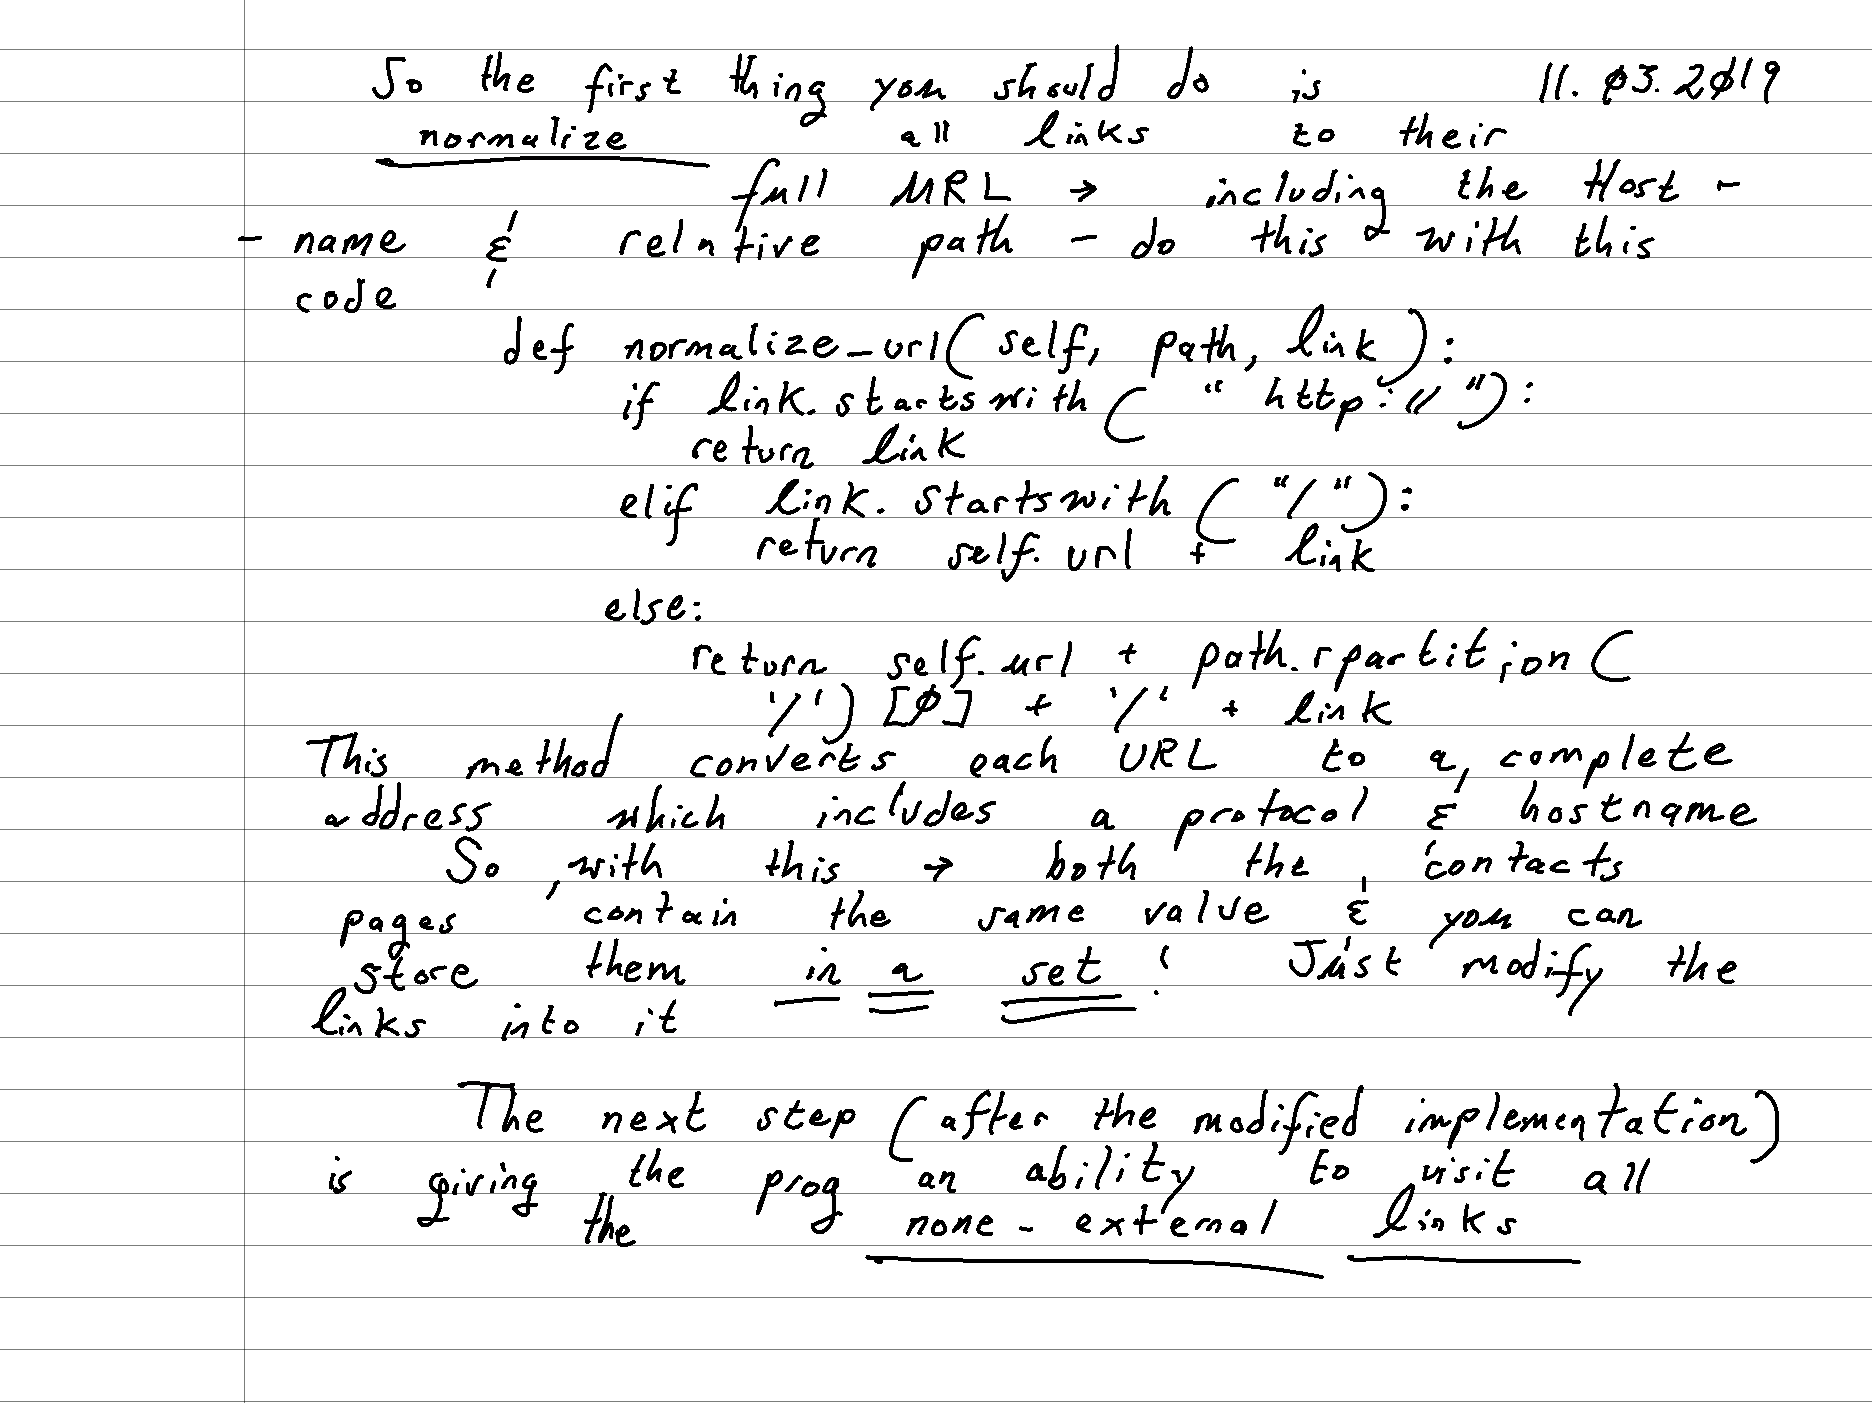 So the first thing you should do is 11.03.2019
normalize all links to their
full URL → including the Host -
- name & relative path - do this with this
code
def normalize_url( self, path, link ):
if link.startswith( "http://"):
return link
elif link.startswith( "/"):
return self.url + link
else:
return self.url + path.rpartition(
'/')[0] + '/' + link
This method converts each URL to a complete
address which includes a protocol & hostname
So, with this → both the contacts
pages contain the same value & you can
store them in a set! Just modify the
links into it
The next step (after the modified implementation)
is giving the prog an ability to visit all
the none-external links